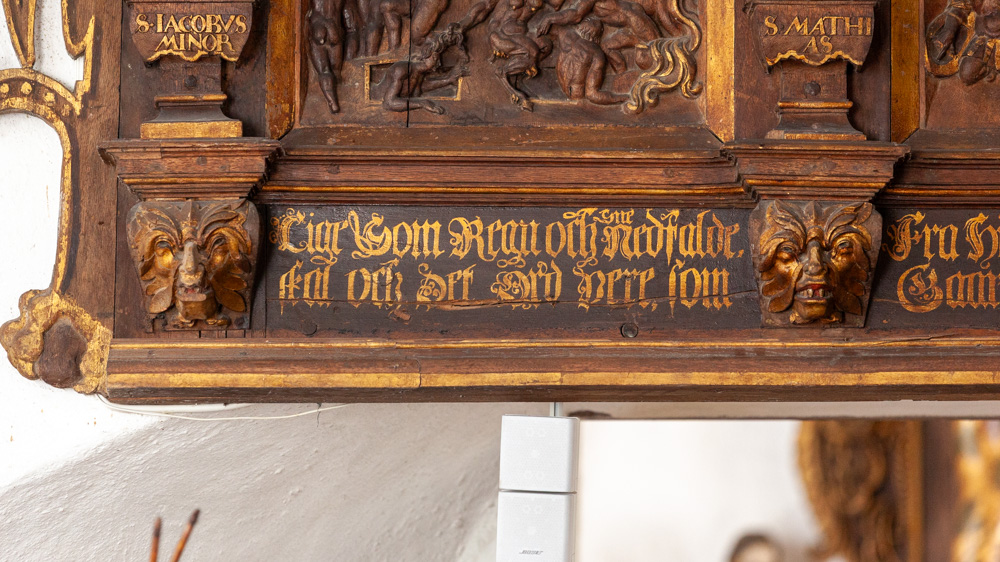 S·IACOBVS
MINOR
S MATHI
AS
Lige Som Regn och Snee Nedfalder,
skal och Det Ord vere som
Fra H
Gaan
BOSE